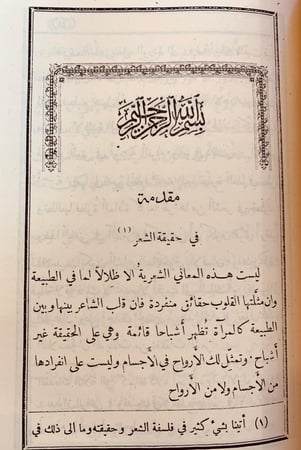 بسم الله الرحمن الرحيم
مقدمة
في حقيقة الشعر (١)
ليست هذه المعاني الشعرية الا ظلالاً لما في الطبيعة
وان مثَّلتها القلوب حقائق منفردة فان قلب الشاعر بينها وبين
الطبيعة كالمرآة تُظهر أشباحا قائمة وهي على الحقيقة غير
أشباح · وتمثّل لك الارواح في الأجسام وليست على انفرادها
من الأجسام ولا من الأرواح
(١) أتينا بشيء كثير في فلسفة الشعر وحقيقته وما الى ذلك في